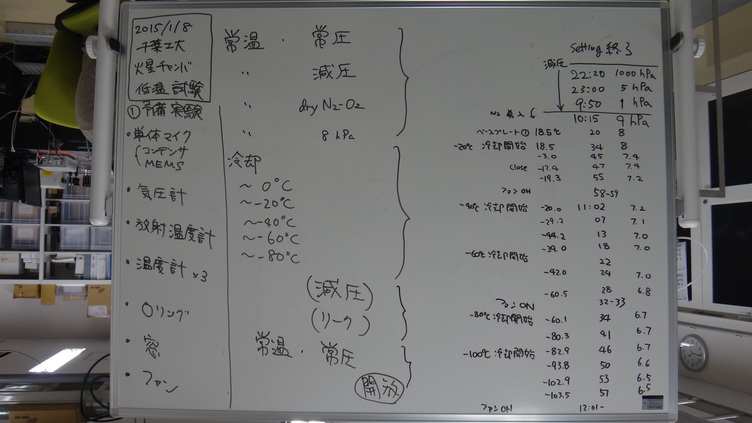 2015/1/8
千葉工大
火星チャンバ
低温試験
①予備実験
・単体マイク
(コンデンサ
MEMS
・気圧計
・放射温度計
・温度計×3
・Oリング
・窓
・ファン
常温・常圧
〃 減圧
〃 dry N2-O2
〃 8 hPa
冷却
～ 0℃
～-20℃
～-40℃
～-60℃
～-80℃
(減圧)
(リーク)
常温・常圧
開放
Setting 終了
減圧
22:20 1000 hPa
23:00 5 hPa
9:50 1 hPa
N2
10:15 9 hPa
ベースプレート① 18.5℃ 20 8
-20℃ 冷却開始 18.5 34 8
-3.0 45 7.4
close -17.4 47 7.4
-19.3 55 7.2
ファンON 58-59
-40℃ 冷却開始 -20.0 11:02 7.2
-29.2 07 7.1
-44.2 13 7.0
-39.0 18 7.0
-60℃ 冷却開始 22
-42.0 24 7.0
-60.5 28 6.8
ファンON 32-33
-80℃ 冷却開始 -60.1 34 6.7
-80.3 41 6.7
-100℃ 冷却開始 -82.9 46 6.7
-93.8 50 6.6
-102.9 53 6.5
-103.5 57 6.5
ファンON 12:01-